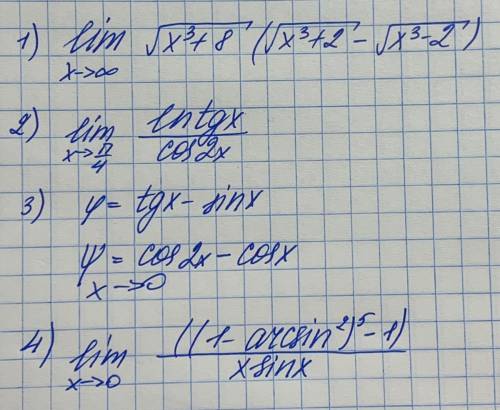 1) lim √(x³+8) (√(x³+2) - √(x³-2))
x→∞
2) lim ln tgx / cos2x
x→π/4
3) φ = tgx - sinx
ψ = cos2x - cosx
x→0
4) lim ((1 - arcsin²)⁵ - 1) / x sinx
x→0